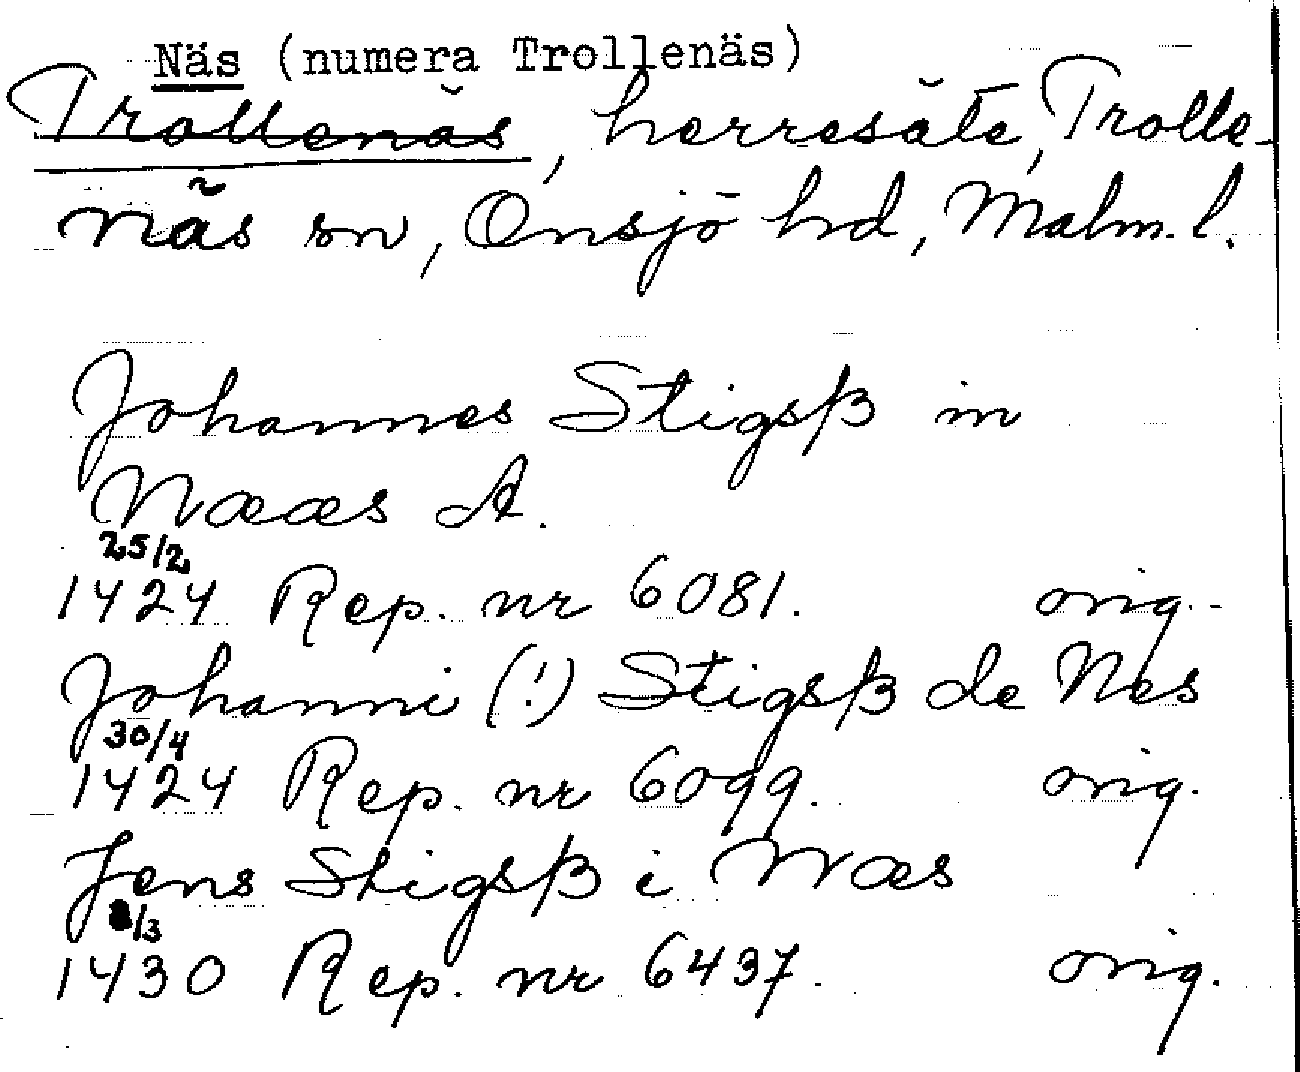 Näs (numera Trollenäs)
Trollenäs, herresäte, Trolle-
näs sn, Onsjö hd, Malm. l.
Johannes Stigsß in
Nææs A.
25/2
1424 Rep. nr 6081. orig.
Johanni (!) Stigsß de Nes
30/4
1424 Rep. nr 6099. orig.
Jens Stigsß i Næs
8/3
1430 Rep. nr 6437. orig.